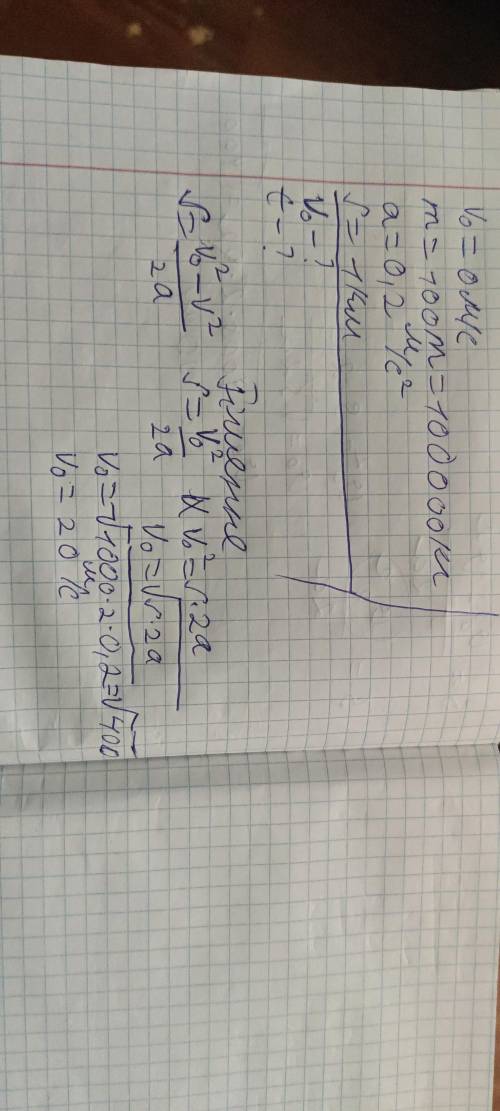 V₀ = 0 м/с
m = 100т = 100000кг
a = 0,2 м/с²
S = 1 км
V₀ - ?
t - ?
Рішення
S = V₀² - V² / 2a
S = V₀² / 2a
V₀² = S · 2a
V₀ = √S · 2a
V₀ = √1000 · 2 · 0,2 = √400
V₀ = 20 м/с